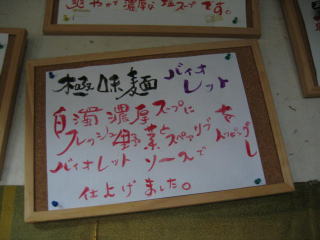 爽やかで濃厚な塩スープです。
極味麺 バイオレット
白濁濃厚スープに
フレッシュ野菜とスペアリブをトッピングし
バイオレットソースで
仕上げました。